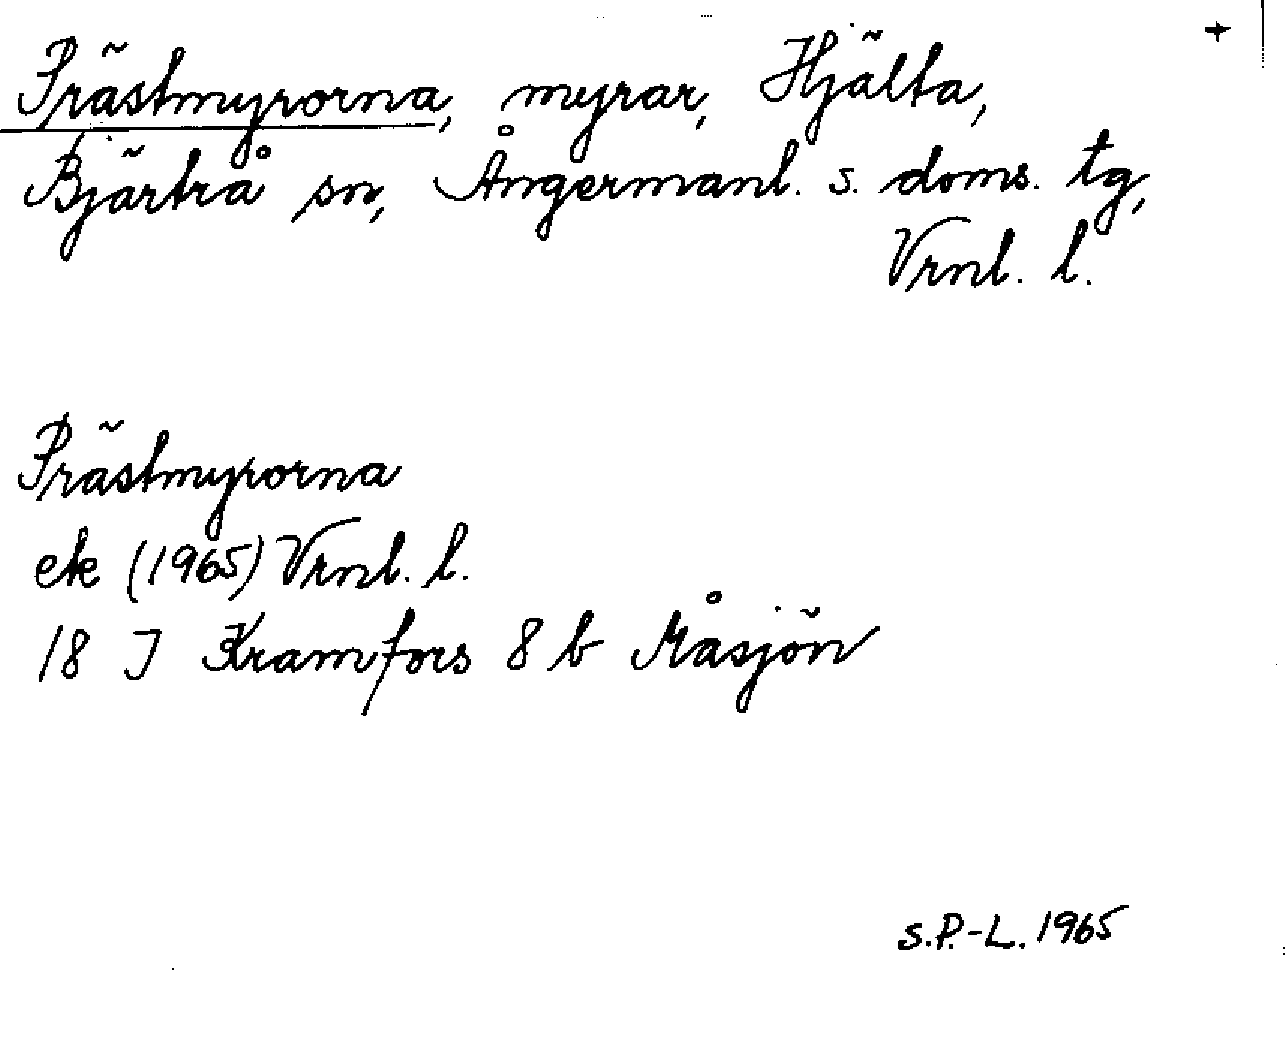 +
Prästmyrorna, myrar, Hjälta,
Bjärtrå sn, Ångermanl. s. doms. tg,
Vrnl. l.
Prästmyrorna
ek (1965) Vrnl. l.
18 J Kramfors 8 b Måsjön
s.P.-L. 1965